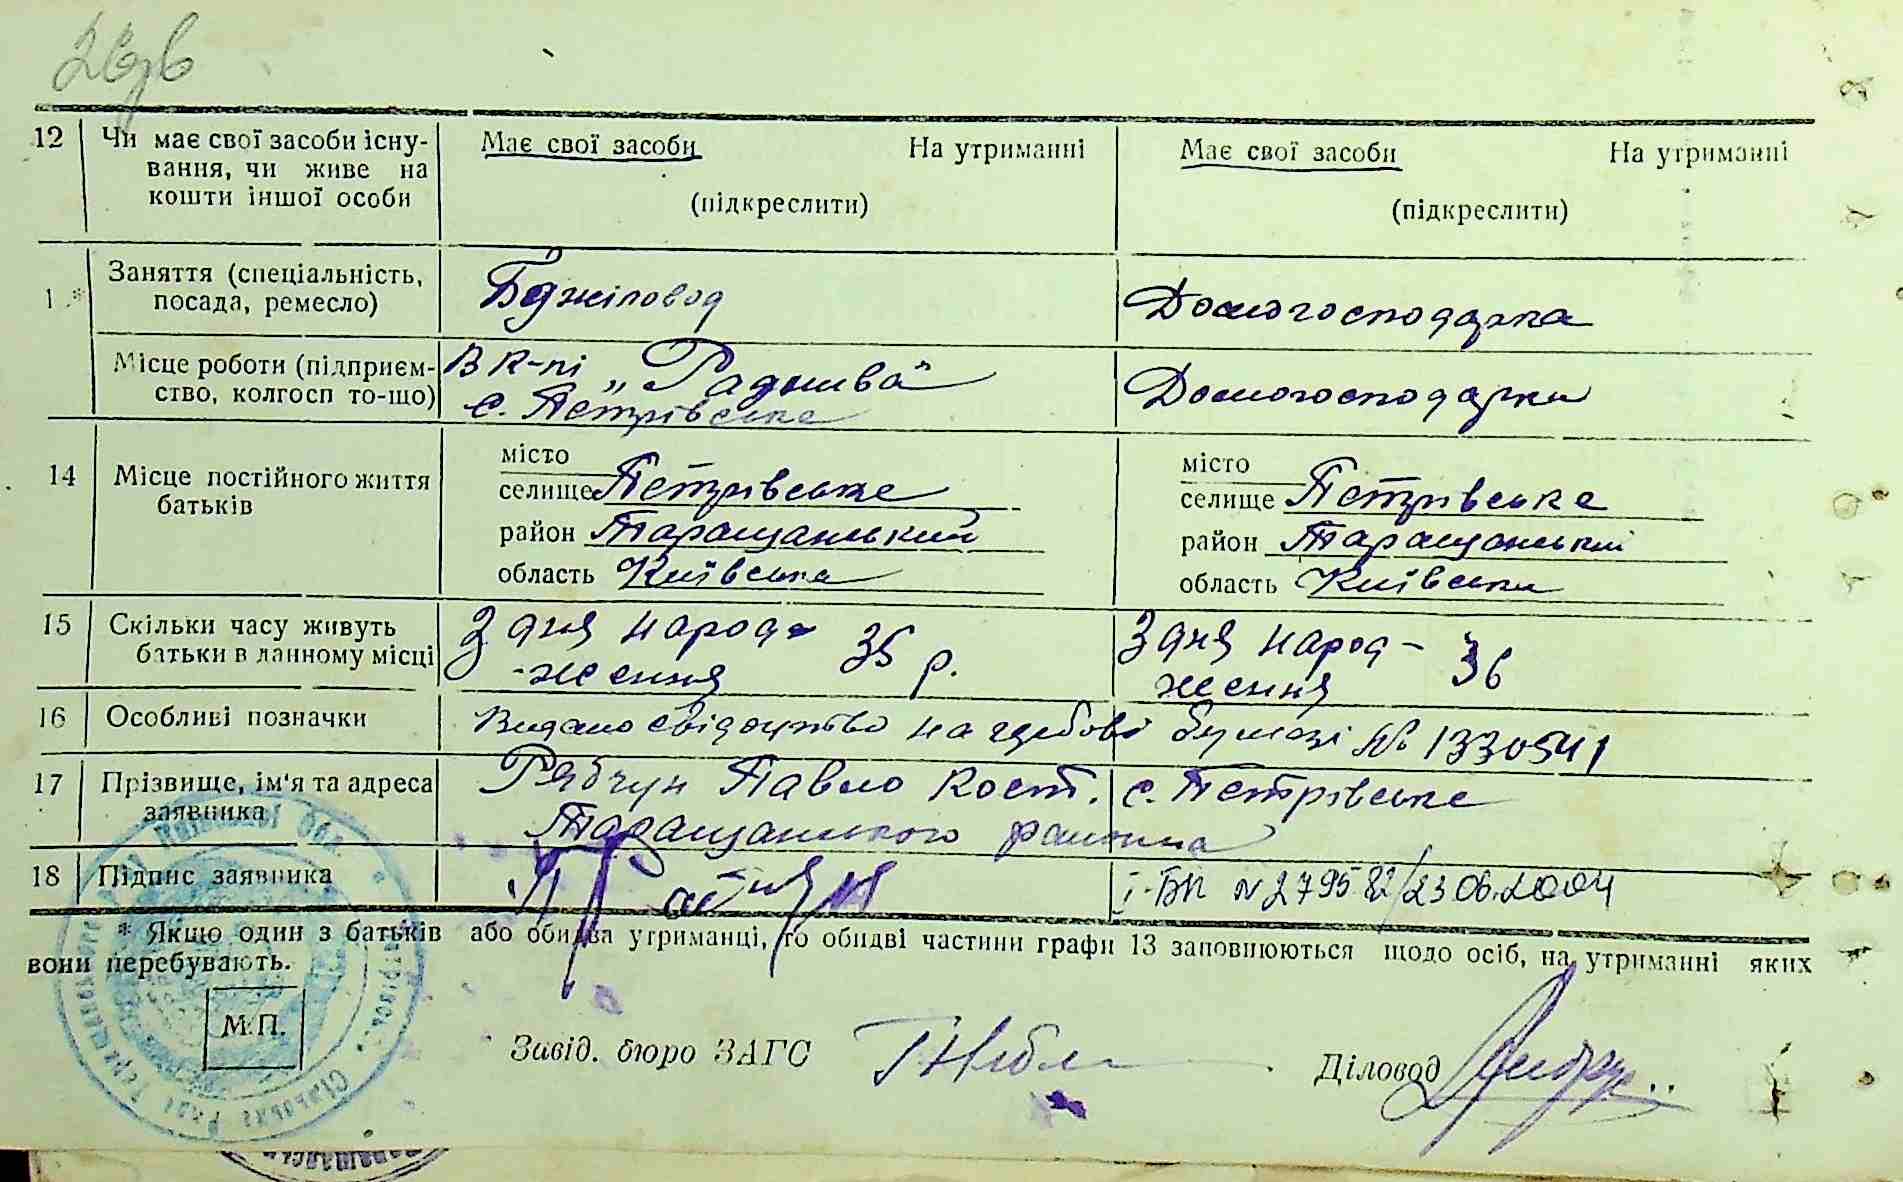 12 Чи має свої засоби існу- Має свої засоби На утриманні Має свої засоби На утриманні
вання, чи живе на
кошти іншої особи (підкреслити) (підкреслити)
1 * Заняття (спеціальність, Бджіловод Домогосподарка
посада, ремесло)
Місце роботи (підприєм- В к-пі „Раднива" Домогосподарки
ство, колгосп то-що) с. Петрівське
14 Місце постійного життя місто місто
батьків селище Петрівське селище Петрівське
район Таращанський район Таращанський
область Київська область Київська
15 Скільки часу живуть З дня народ- 35 р. З дня народ- 36
батьки в данному місці -ження ження
16 Особливі позначки Видано свідоцтво на гербові бумазі № 1330541
17 Прізвище, ім'я та адреса Рябчун Павло Кост. с. Петрівське
заявника Таращанського района
18 Підпис заявника І-БК № 279582/23.06.2004
* Якщо один з батьків або обидва утриманці, то обидві частини графи 13 заповнюються щодо осіб, на утриманні яких
вони перебувають.
М.П.
Завід. бюро ЗАГС Діловод